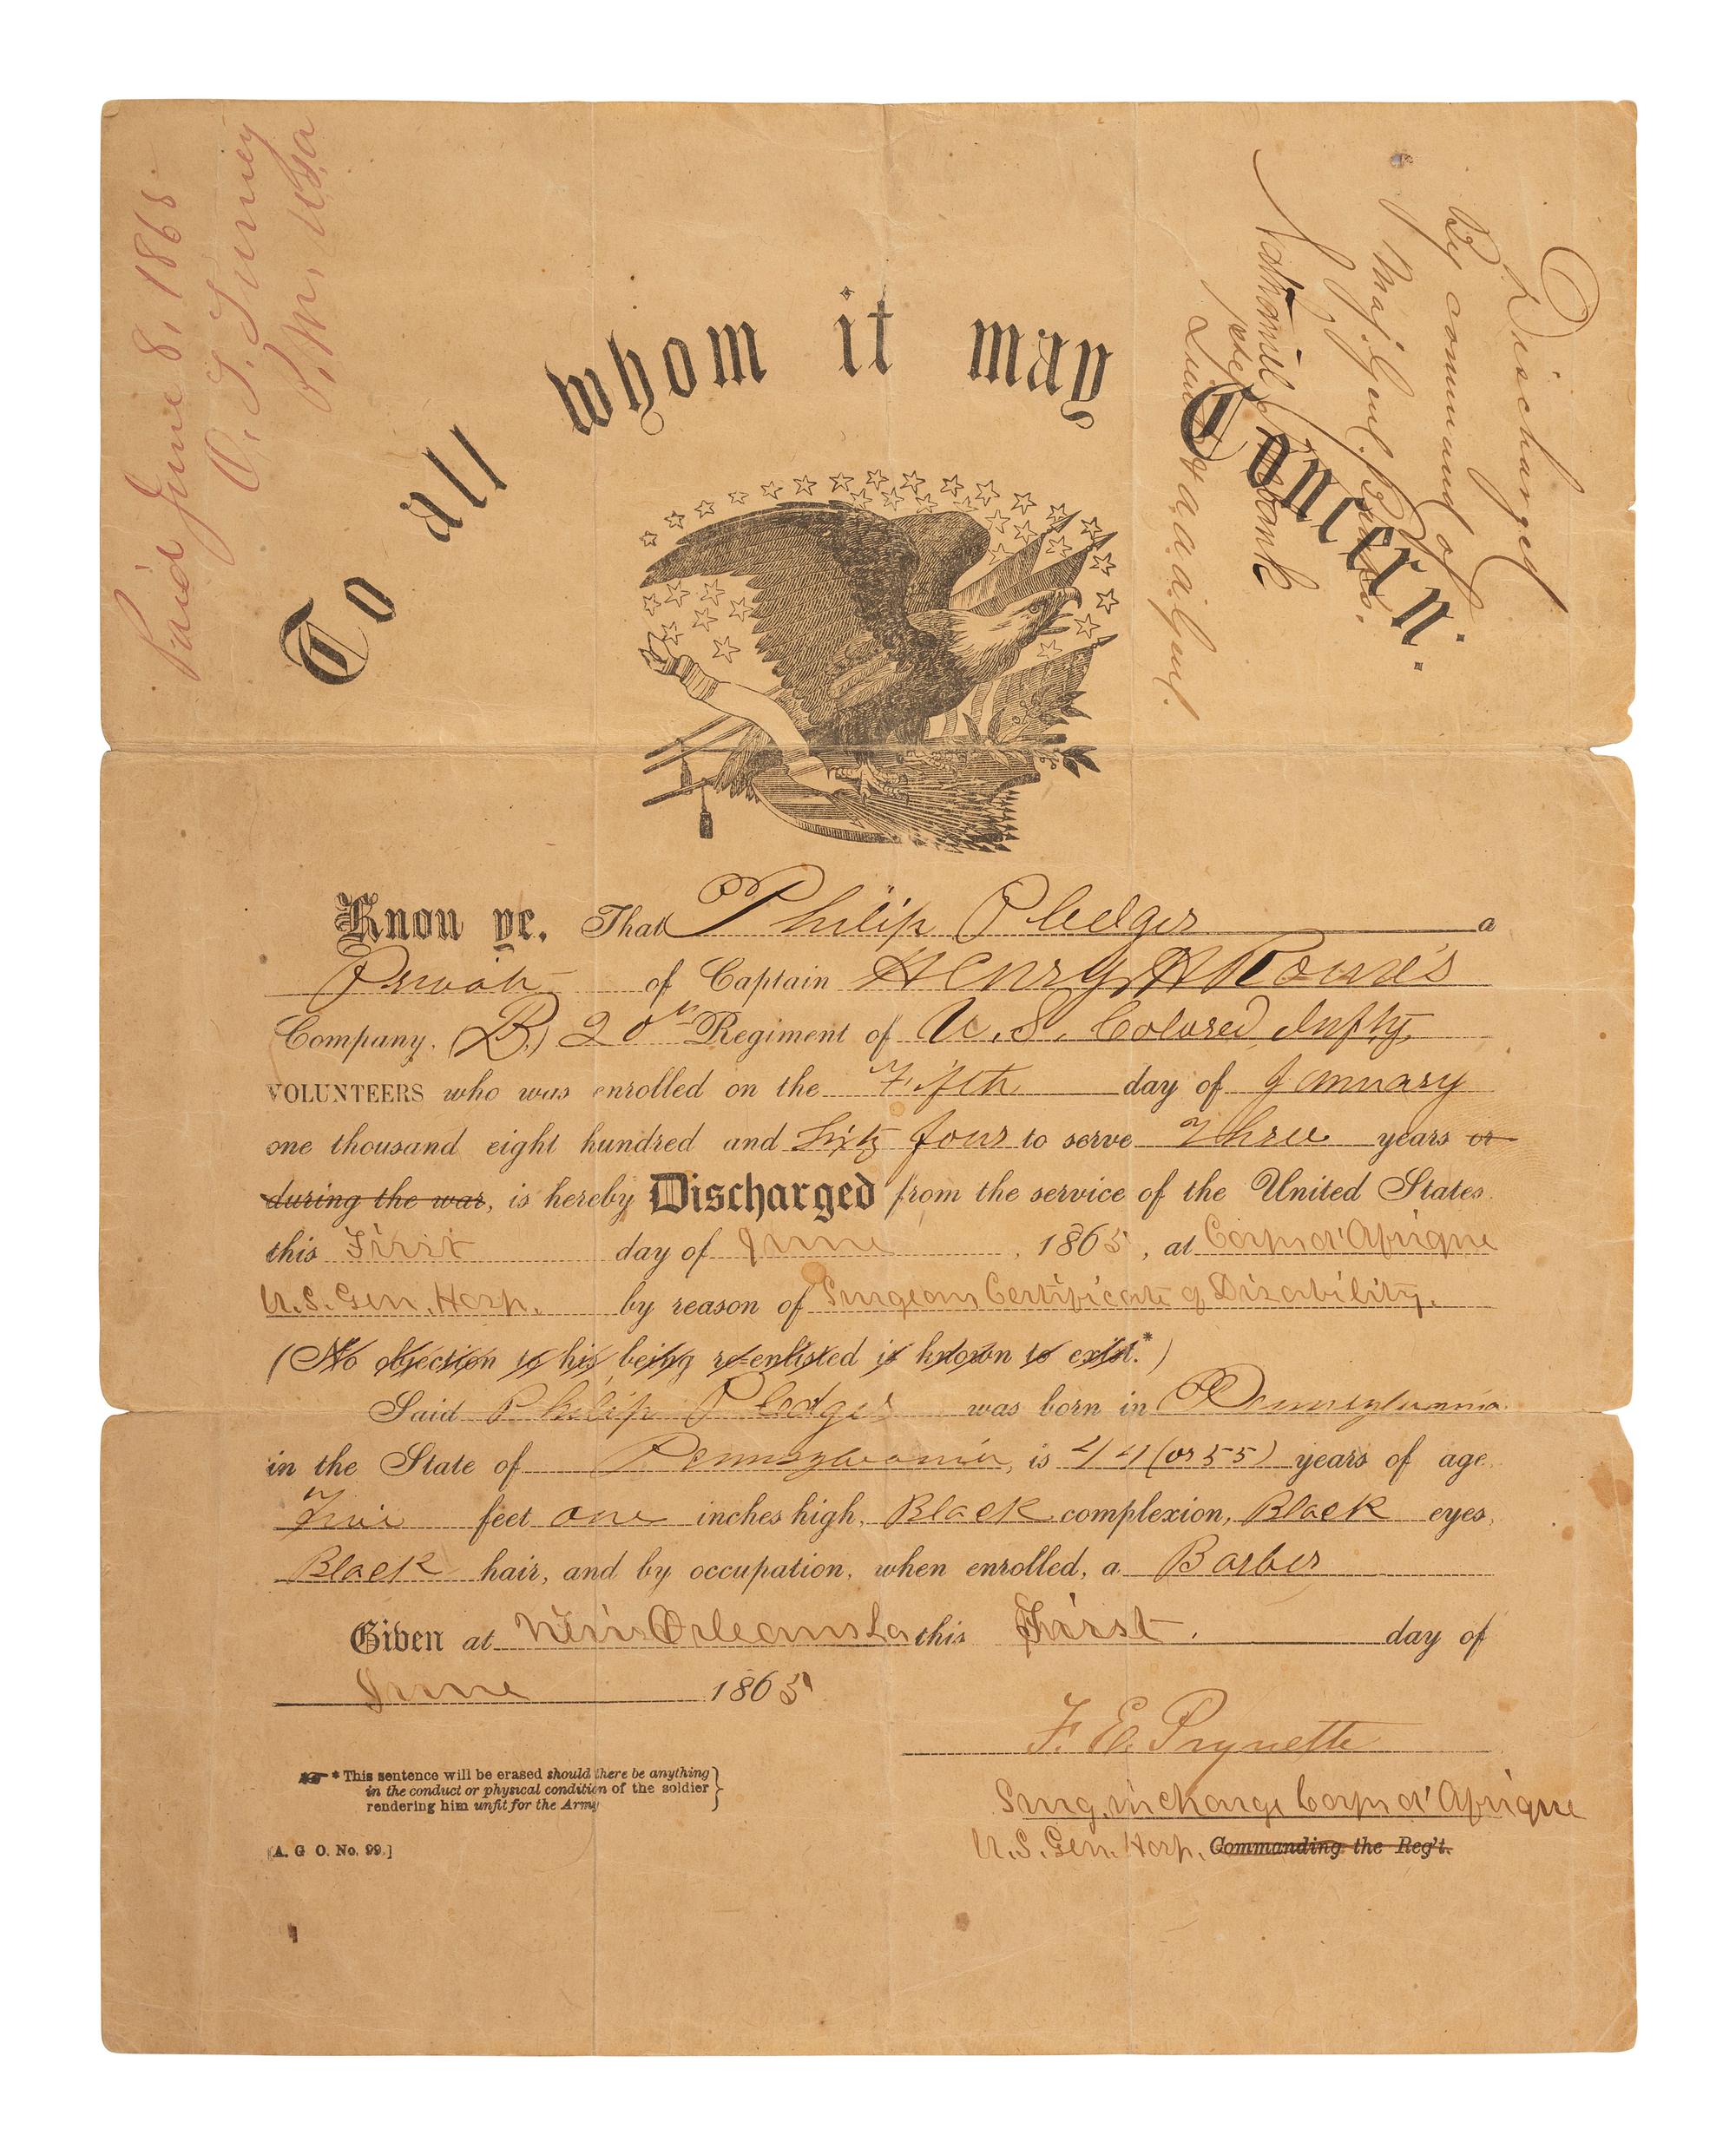 Paid June 8, 1865
P. M. USA
Discharged
By command of
Maj. Genl. Banks.
Nathaniel
To all whom it may Concern.
Know ye, That Philip Pledger a
Private of Captain Henry A Rowe's
Company, (B,) 20th Regiment of U. S. Colored Infty.
VOLUNTEERS who was enrolled on the Fifth day of January
one thousand eight hundred and Sixty four to serve Three years or
during the war, is hereby Discharged from the service of the United States
this First day of June, 1865, at Corps d'Afrique
U.S. Gen. Hosp. by reason of Surgeons Certificate of Disability.
(No objection to his being re-enlisted is known to exist.*)
Said Philip Pledger was born in Pennsylvania
in the State of Pennsylvania, is 44 (or 55) years of age
Five feet one inches high, Black complexion, Black eyes,
Black hair, and by occupation, when enrolled, a Barber
Given at New Orleans La this First. day of
June 1865
F. E. Prynette
Surg. in charge Corps d'Afrique
U.S. Gen. Hosp. Commanding the Reg't.
* This sentence will be erased should there be anything
in the conduct or physical condition of the soldier
rendering him unfit for the Army
[A. G O. No. 99.]